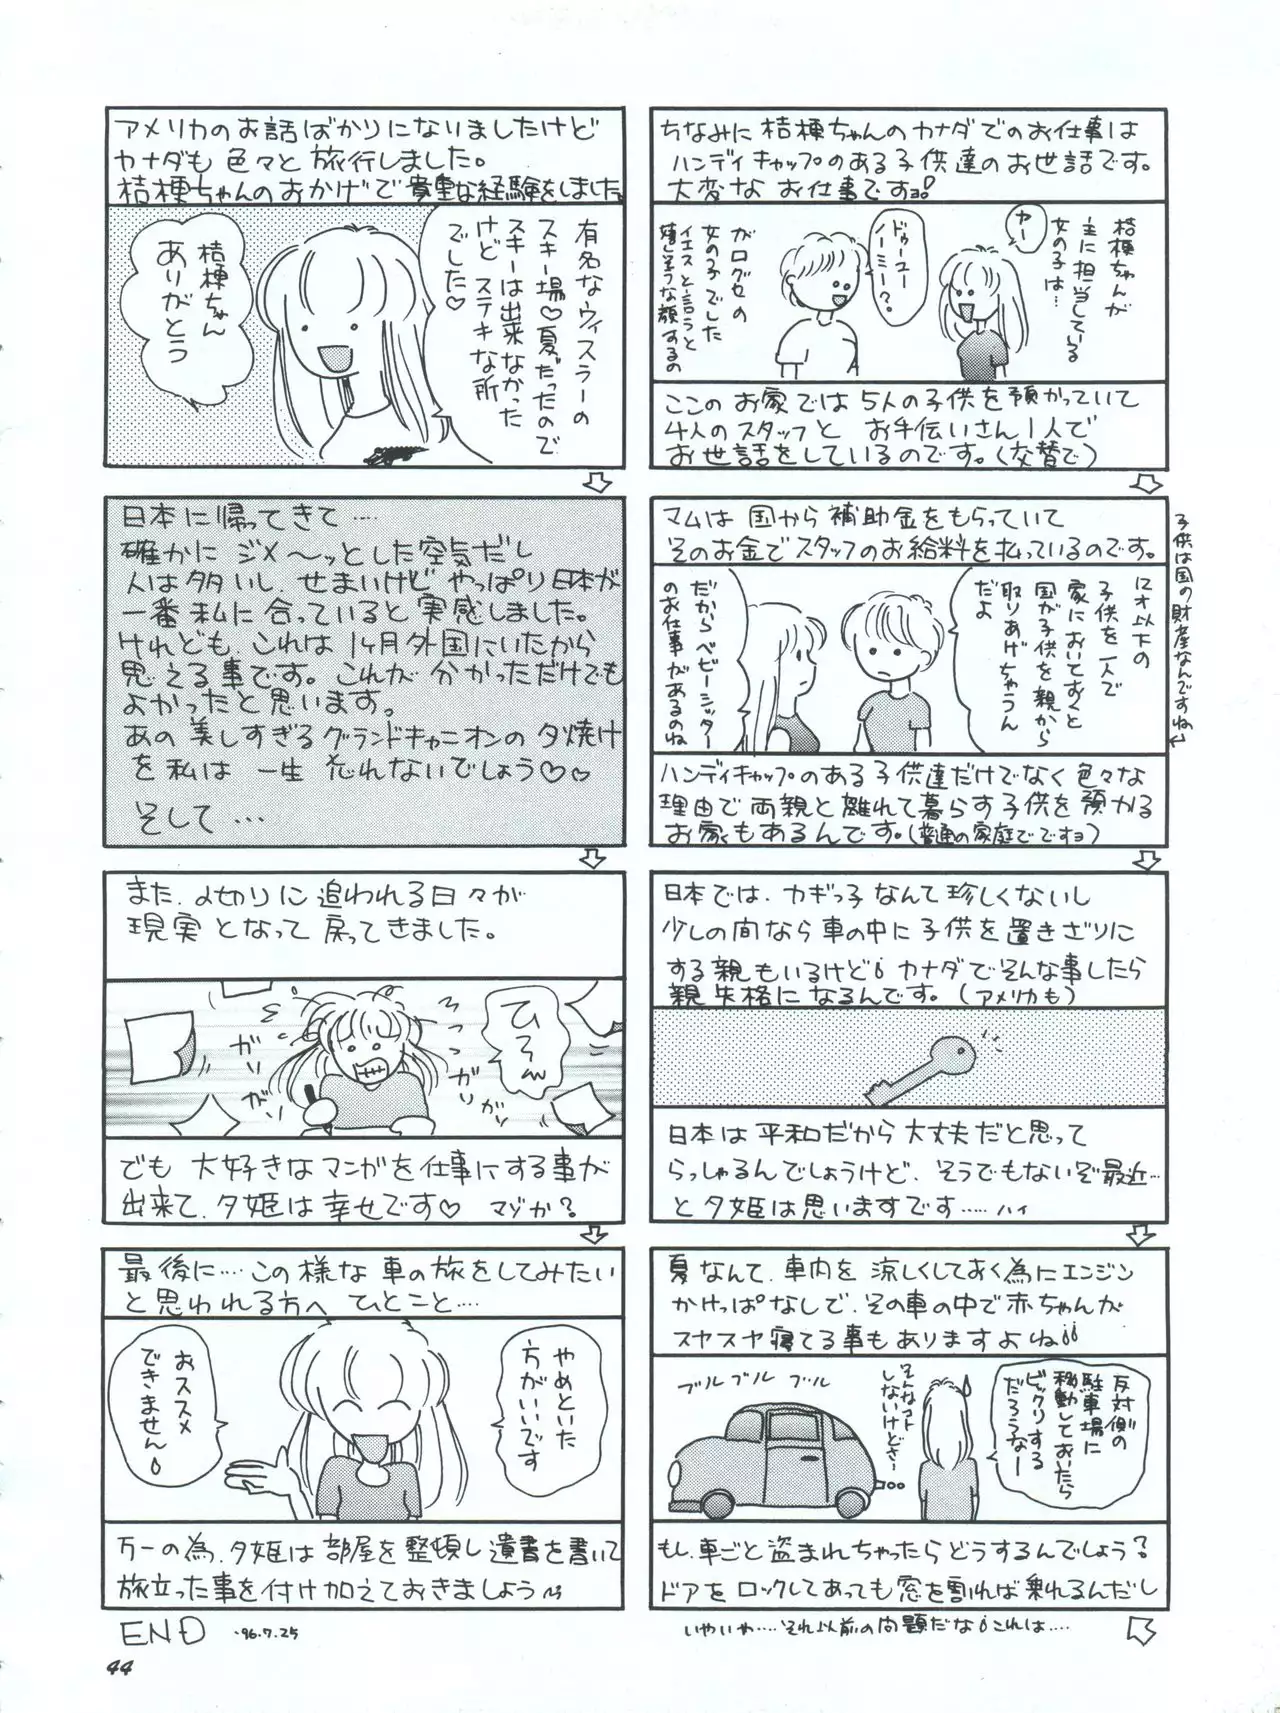 ちなみに桔梗ちゃんのカナダでのお仕事は
ハンディキャップのある子供達のお世話です。
大変なお仕事ですヨ!
桔梗ちゃんが
主に担当している
女の子は…
ヤー
ドゥーユー
ノーミー?
がログセの
女の子でした
イエスと言うと
嬉しそうな顔するの
ここのお家では5人の子供を預かっていて
4人のスタッフとお手伝いさん1人で
お世話をしているのです。(交替で)
マムは国から補助金をもらっていて
そのお金でスタッフのお給料を払っているのです。
12才以下の
子供を一人で
家においておくと
国が子供を親から
取りあげちゃうん
だよ
だからベビーシッター
のお仕事があるのね
子供は国の財産なんですね
ハンディキャップのある子供達だけでなく色々な
理由で両親と離れて暮らす子供を預かる
お家もあるんです。(普通の家庭でですヨ)
日本では、カギっ子なんて珍しくないし
少しの間なら車の中に子供を置きざりに
する親もいるけど カナダでそんな事したら
親失格になるんです。(アメリカも)
日本は平和だから大丈夫だと思って
らっしゃるんでしょうけど、そうでもないぞ最近…
と夕姫は思いますです……ハイ
夏なんて、車内を涼しくしておく為にエンジン
かけっぱなしで、その車の中で赤ちゃんが
スヤスヤ寝てる事もありますよね
ブルブルブル
そんなコト
しないけどさ…
反対側の
駐車場に
移動しておいたら
ビックリする
だろうなー
もし、車ごと盗まれちゃったらどうするんでしょう?
ドアをロックしてあっても窓を割れば乗れるんだし
いやいや……それ以前の問題だな これは……
アメリカのお話ばかりになりましたけど
カナダも色々と旅行しました。
桔梗ちゃんのおかげで貴重な経験をしました。
有名なウィスラーの
スキー場♡夏だったので
スキーは出来なかった
けどステキな所
でした♡
桔梗ちゃん
ありがとう
日本に帰ってきて……
確かにジメ〜ッとした空気だし
人は多いし、せまいけどやっぱり日本が
一番私に合っていると実感しました。
けれども、これは1ヶ月外国にいたから
思える事です。これが分かっただけでも
よかったと思います。
あの美しすぎるグランドキャニオンの夕焼け
を私は一生忘れないでしょう♡♡
そして…
また、〆切りに追われる日々が
現実となって戻ってきました。
ひ〜ん
ガリガリ
ガリガリ
でも大好きなマンガを仕事にする事が
出来て、夕姫は幸せです♡ マゾか?
最後に……この様な車の旅をしてみたい
と思われる方へ ひとこと……
やめといた
方がいいです
おススメ
できません
万一の為、夕姫は部屋を整頓し遺書を書いて
旅立った事を付け加えておきましょう
END '96.7.25
44